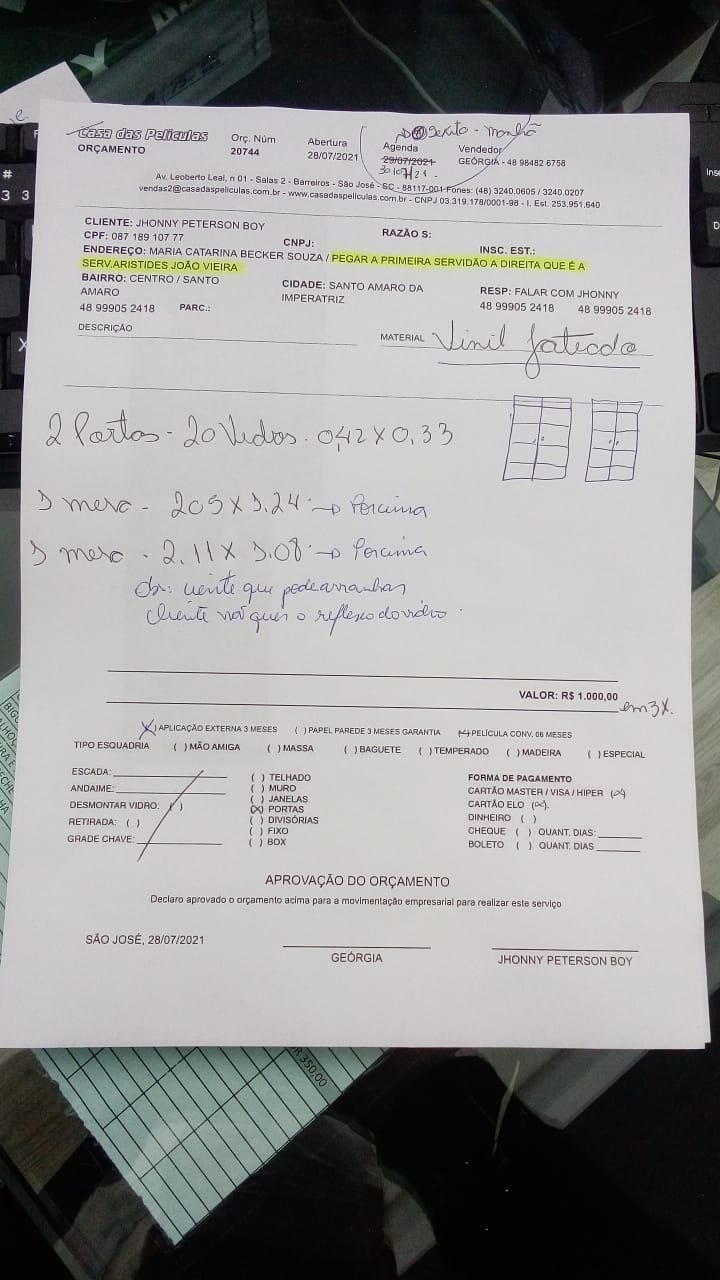 Casa das Películas
ORÇAMENTO
Orç. Núm
20744
Abertura
28/07/2021
Agenda
29/07/2021
30/07/21
Sexta - Manhã
Vendedor
GEÓRGIA - 48 98482 6758
Av. Leoberto Leal, n 01 - Salas 2 - Barreiros - São José - SC - 88117-001 Fones: (48) 3240.0605 / 3240.0207
vendas2@casadaspeliculas.com.br - www.casadaspeliculas.com.br - CNPJ 03.319.178/0001-98 - I. Est. 253.951.640
CLIENTE: JHONNY PETERSON BOY
RAZÃO S:
CPF: 087 189 107 77
CNPJ:
INSC. EST.:
ENDEREÇO: MARIA CATARINA BECKER SOUZA / PEGAR A PRIMEIRA SERVIDÃO A DIREITA QUE É A
SERV.ARISTIDES JOÃO VIEIRA
BAIRRO: CENTRO / SANTO
AMARO
CIDADE: SANTO AMARO DA
IMPERATRIZ
RESP: FALAR COM JHONNY
48 99905 2418
PARC.:
48 99905 2418 48 99905 2418
DESCRIÇÃO
MATERIAL Vinil Jateado
2 Portas - 20 Vidros. 0,42 X 0,33
1 mesa - 205 X 1.24 → Porcima
1 mesa - 2.11 X 1.08 → Porcima
obs: ciente que pode arranhar
cliente não quer o reflexo do vidro.
VALOR: R$ 1.000,00
em 3X.
(X) APLICAÇÃO EXTERNA 3 MESES ( ) PAPEL PAREDE 3 MESES GARANTIA (X) PELÍCULA CONV. 06 MESES
TIPO ESQUADRIA ( ) MÃO AMIGA ( ) MASSA ( ) BAGUETE ( ) TEMPERADO ( ) MADEIRA ( ) ESPECIAL
ESCADA:
ANDAIME:
DESMONTAR VIDRO: ( )
RETIRADA: ( )
GRADE CHAVE:
( ) TELHADO
( ) MURO
( ) JANELAS
(X) PORTAS
( ) DIVISÓRIAS
( ) FIXO
( ) BOX
FORMA DE PAGAMENTO
CARTÃO MASTER / VISA / HIPER (X)
CARTÃO ELO (X).
DINHEIRO ( )
CHEQUE ( ) QUANT. DIAS:
BOLETO ( ) QUANT. DIAS
APROVAÇÃO DO ORÇAMENTO
Declaro aprovado o orçamento acima para a movimentação empresarial para realizar este serviço
SÃO JOSÉ, 28/07/2021
GEÓRGIA
JHONNY PETERSON BOY
350,00